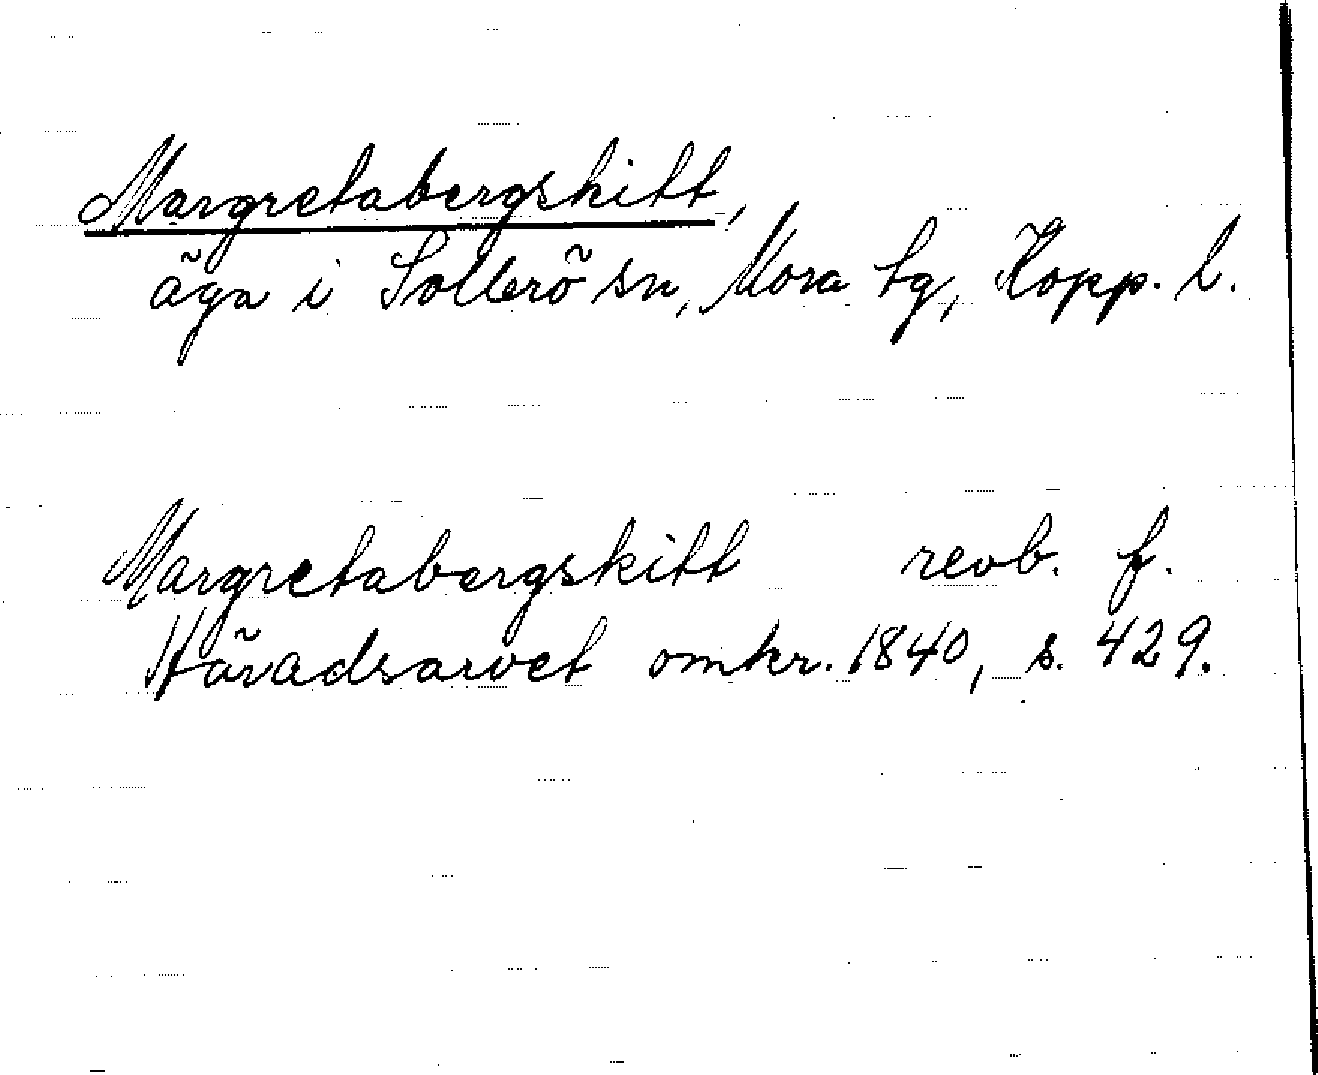 Margretabergskitt,
äga i Sollerö sn, Mora tg, Kopp. l.
Margretabergskitt revb. f.
Häradsarvet omkr. 1840, s. 429.